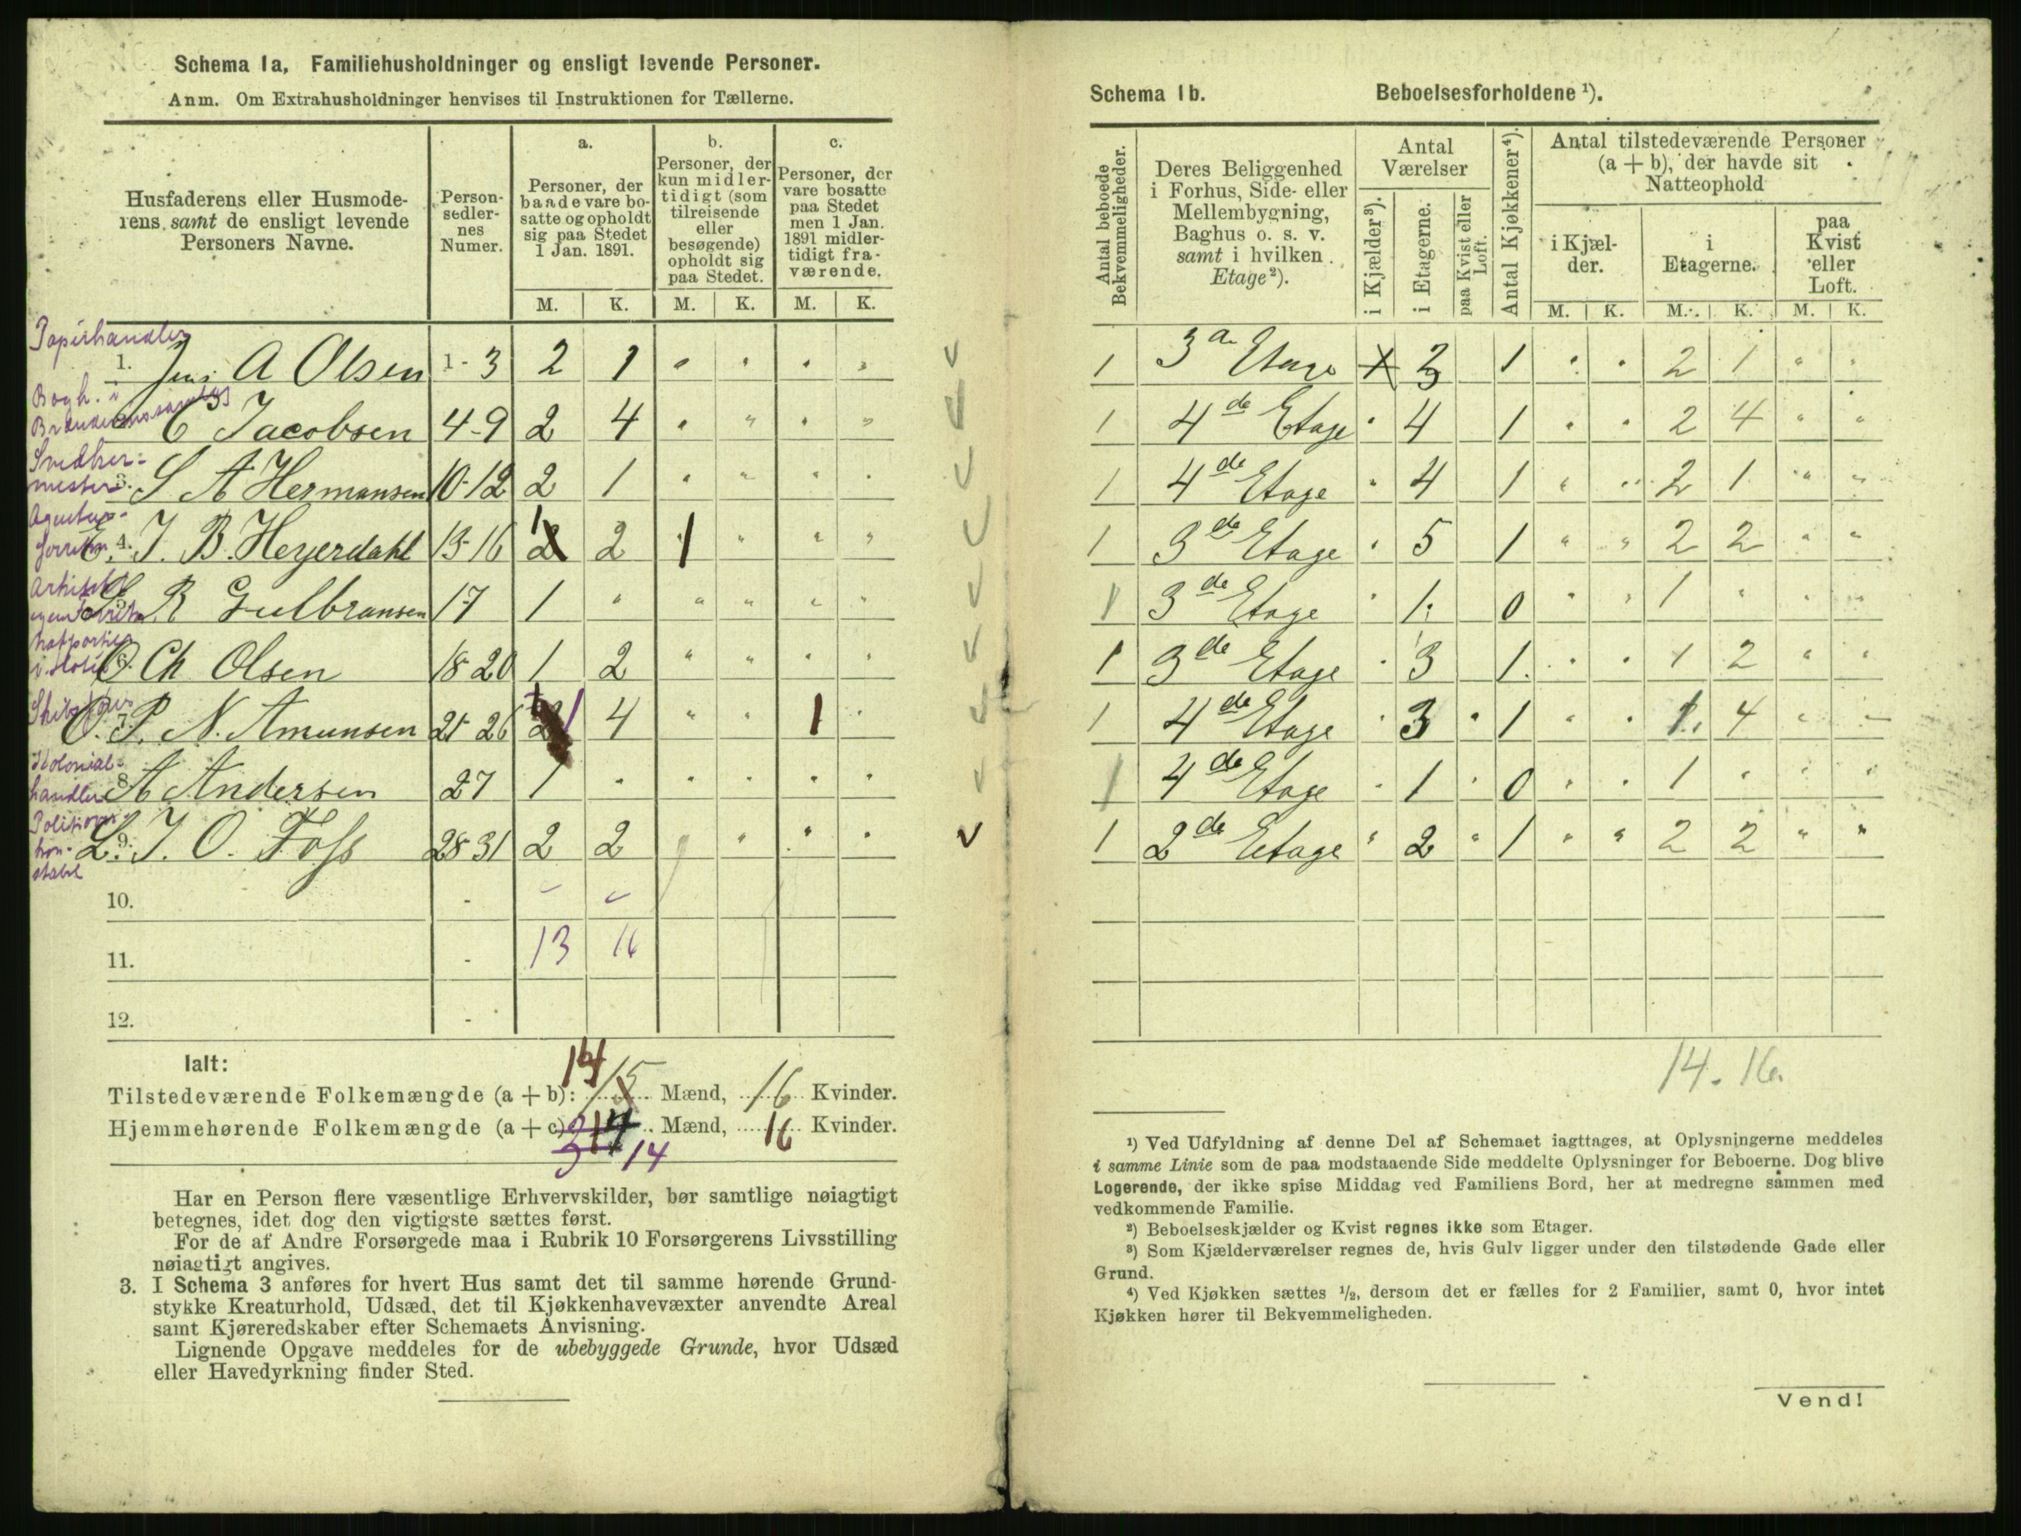 Schema 1a, Familiehusholdninger og ensligt levende Personer.
Anm. Om Extrahusholdninger henvises til Instruktionen for Tællerne.
Husfaderens eller Husmode-
rens samt de ensligt levende
Personers Navne.
Person-
sedler-
nes
Numer.
a.
Personer, der
baade vare bo-
satte og opholdt
sig paa Stedet
1 Jan. 1891.
b.
Personer, der
kun midler-
tidigt (som
tilreisende
eller
besøgende)
opholdt sig
paa Stedet.
c.
Personer, der
vare bosatte
paa Stedet
men 1 Jan.
1891 midler-
tidigt fra-
værende.
M. K. M. K. M. K.
Papirhandler
1. Jens A Olsen 1-3 2 1 " " " "
Bogh. i
C Jacobsen 4-9 2 4 " " " "
Snedker-
mester
3. S A Hermansen 10-12 2 1 " " " "
Agentur-
4. J. B. Heyerdahl 13-16 1 2 2 1 " " "
Arkitekt
R Gulbransen 17 1 " " " " "
6. O Ch Olsen 18-20 1 2 " " " "
7. O. P. N. Amunsen 21-26 1 4 " " 1 "
Kolonial-
handler
8. A Andersen 27 1 " " " " "
Politi
kon-
stabel
9. L. J. O. Foss 28-31 2 2 " " "
10. -
11. - 13 16
12. -
Ialt:
Tilstedeværende Folkemængde (a + b): 14 15 Mænd, 16 Kvinder.
Hjemmehørende Folkemængde (a + c) 14 Mænd, 16 Kvinder.
Har en Person flere væsentlige Erhvervskilder, bør samtlige nøiagtigt
betegnes, idet dog den vigtigste sættes først.
For de af Andre Forsørgede maa i Rubrik 10 Forsørgerens Livsstilling
nøiagtigt angives.
3. I Schema 3 anføres for hvert Hus samt det til samme hørende Grund-
stykke Kreaturhold, Udsæd, det til Kjøkkenhavevæxter anvendte Areal
samt Kjøreredskaber efter Schemaets Anvisning.
Lignende Opgave meddeles for de ubebyggede Grunde, hvor Udsæd
eller Havedyrkning finder Sted.
Schema 1b. Beboelsesforholdene ¹).
Antal beboede
Bekvemmeligheder.
Deres Beliggenhed
i Forhus, Side- eller
Mellembygning,
Baghus o. s. v.
samt i hvilken
Etage²).
Antal
Værelser
i Kjælder³).
i Etagerne.
paa Kvist eller
Loft.
Antal Kjøkkener⁴).
Antal tilstedeværende Personer
(a + b), der havde sit
Natteophold
i Kjæl-
der.
i
Etagerne.
paa
Kvist
eller
Loft.
M. K. M. K. M. K.
1 3 Etage 1 3 1 " " 2 1 " "
1 4de Etage " 4 1 " " 2 4 " "
1 4de Etage " 4 1 " " 2 1 " "
1 3de Etage " 5 1 " " 2 2 " "
1 3de Etage " 1 0 " " 1 " " "
1 3de Etage " 3 1 " " 1 2 " "
1 4de Etage " 3 " 1 " " 1 4 " "
1 4de Etage " 1 " 0 " " 1 " " "
1 2de Etage " 2 " 1 " " 2 2 " "
14. 16
¹) Ved Udfyldning af denne Del af Schemaet iagttages, at Oplysningerne meddeles
i samme Linie som de paa modstaaende Side meddelte Oplysninger for Beboerne. Dog blive
Logerende, der ikke spise Middag ved Familiens Bord, her at medregne sammen med
vedkommende Familie.
²) Beboelseskjælder og Kvist regnes ikke som Etager.
³) Som Kjælderværelser regnes de, hvis Gulv ligger under den tilstødende Gade eller
Grund.
⁴) Ved Kjøkken sættes ½, dersom det er fælles for 2 Familier, samt 0, hvor intet
Kjøkken hører til Bekvemmeligheden.
Vend!